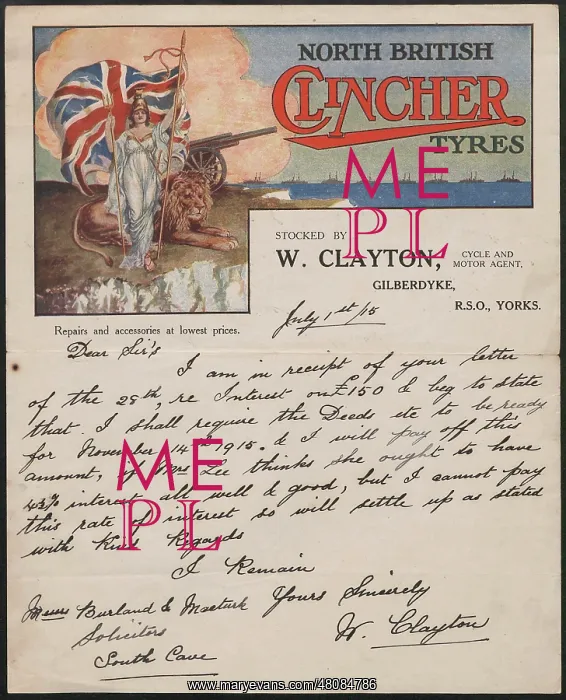 NORTH BRITISH
CLINCHER
TYRES
STOCKED BY
W. CLAYTON,
CYCLE AND
MOTOR AGENT,
GILBERDYKE,
R.S.O., YORKS.
Repairs and accessories at lowest prices.
July 1st/15
Dear Sir's
I am in receipt of your letter
of the 28th, re Interest on £150 & beg to state
that I shall require the Deeds etc to be ready
for November 14th 1915. & I will pay off this
amount, if Mrs Lee thinks she ought to have
4¾% interest all well & good, but I cannot pay
this rate of interest so will settle up as stated
with Kind Regards
I Remain
Yours Sincerely
W. Clayton
Messrs Burland & Macturk
Soliciters
South Cave
ME
PL
ME
PL
www.maryevans.com/48084786